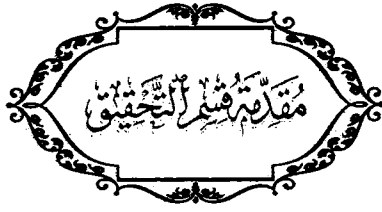 مُقَدِّمَةُ قِسْمِ التَّحْقِيقِ